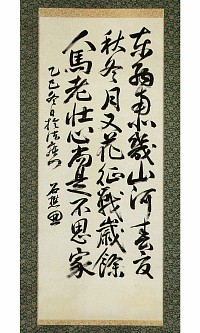 東西南北幾山河春夏
秋冬月又花征戰歲餘
人馬老壯心尚是不思家
乙巳冬日於法庫門
石樵